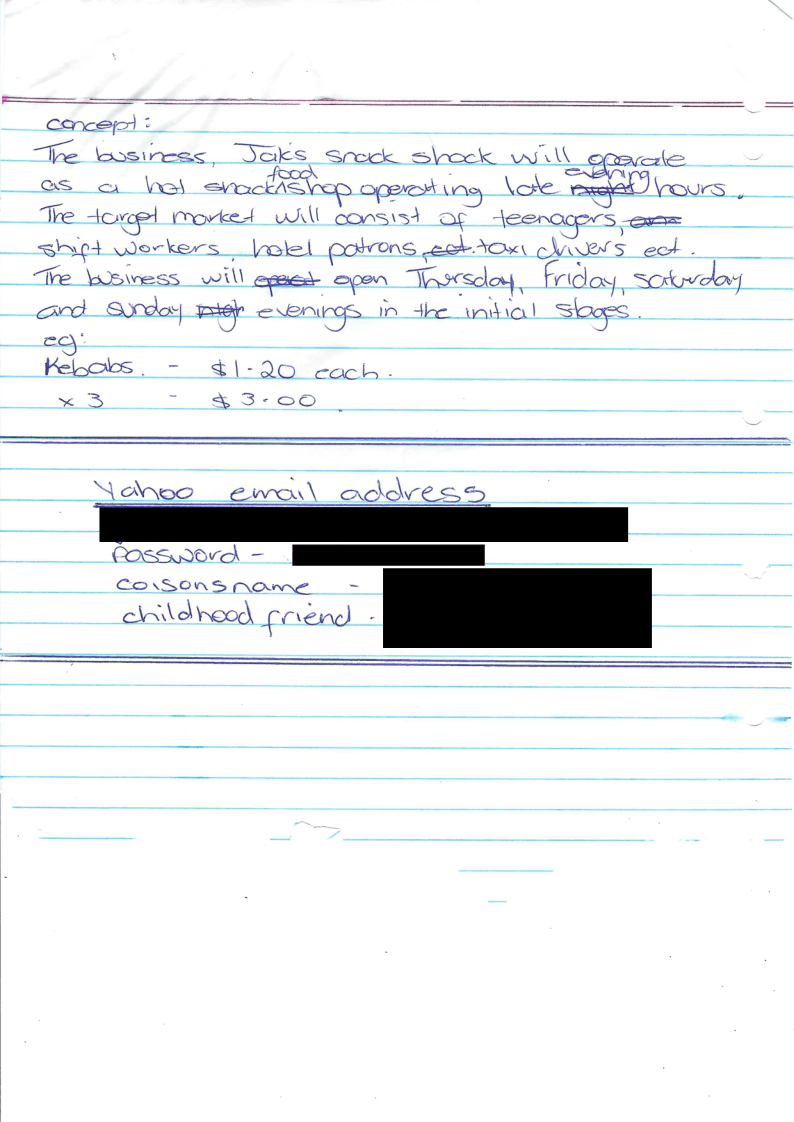 concept:
The business, Jak's snack shack will operate
as a hot snack food shop operating late evening hours.
The target market will consist of teenagers,
shift workers, hotel patrons, ect. taxi drivers ect.
The business will open Thursday, Friday, saturday
and sunday evenings in the initial stages.
eg:
Kebabs. - $1.20 each.
x 3 - $3.00
Yahoo email address
Password -
coisons name -
childhood friend -